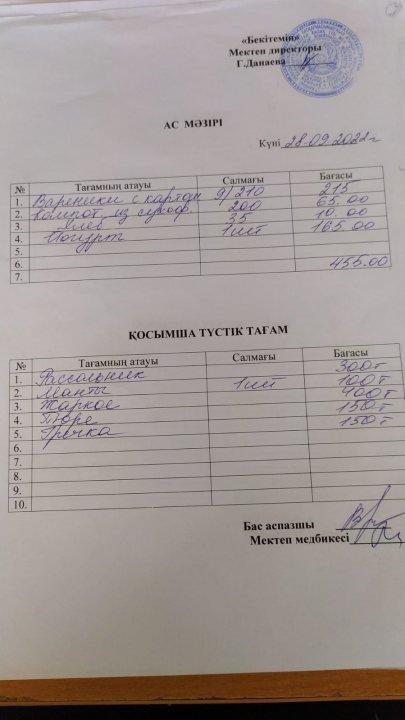 «Бекітемін»
Мектеп директоры
Г.Данаева
АС МӘЗІРІ
Күні 28.09.2022г
№ Тағамның атауы Салмағы Бағасы
1. Вареники с картоф 9/210 215
2. Компот из сухоф. 200 65.00
3. Хлеб 35 10.00
4. Йогурт 1шт 165.00
5.
6. 455.00
7.
ҚОСЫМША ТҮСТІК ТАҒАМ
№ Тағамның атауы Салмағы Бағасы
1. Рассольник 300т
2. Манты 1шт 100т
3. Жаркое 400т
4. Пюре 150т
5. Гречка 150т
6.
7.
8.
9.
10.
Бас аспазшы
Мектеп медбикесі